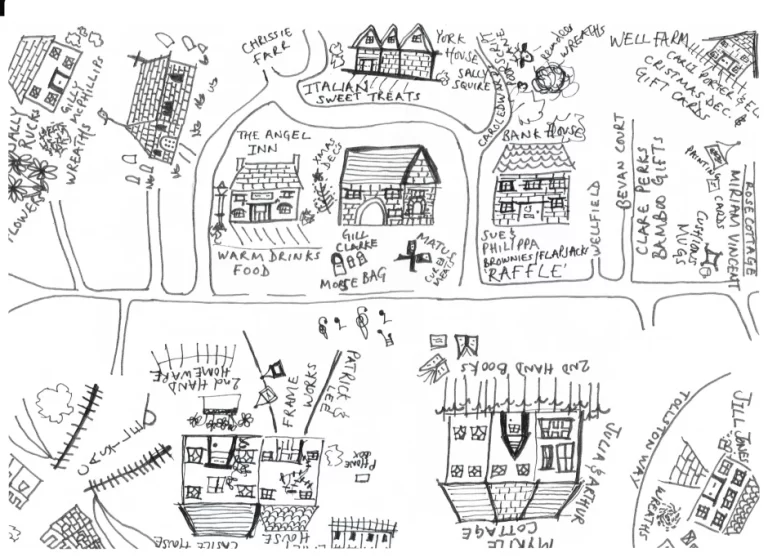 CHRISSIE
FARR
YORK
HOUSE
SALLY
SQUIRE
ITALIAN
SWEET TREATS
WREATHS
WELL FARM
GIFT CARDS
GILLY
MCPHILLIPS
WREATHS
THE ANGEL
INN
XMAS
DECS
BANK HOUSE
GILL
CLARKE
MORSE BAG
WARM DRINKS
FOOD
SUE &
PHILIPPA
BROWNIES/FLAPJACKS
'RAFFLE'
WELLFIELD
BEVAN COURT
CLARE PERKS
BAMBOO GIFTS
PAINTING
CARDS
CUSHIONS
MUGS
ROSE COTTAGE
MIRIAM VINCENT
2nd HAND
HOMEWARE
FRAME
WORKS
PATRICK
LEE
2ND HAND BOOKS
CASTLE
PHONE
BOX
JULIA & ARTHUR
TOLLSTON WAY
JILL JONES
WREATHS
CASTLE HOUSE
HOUSE
MYRTLE
COTTAGE